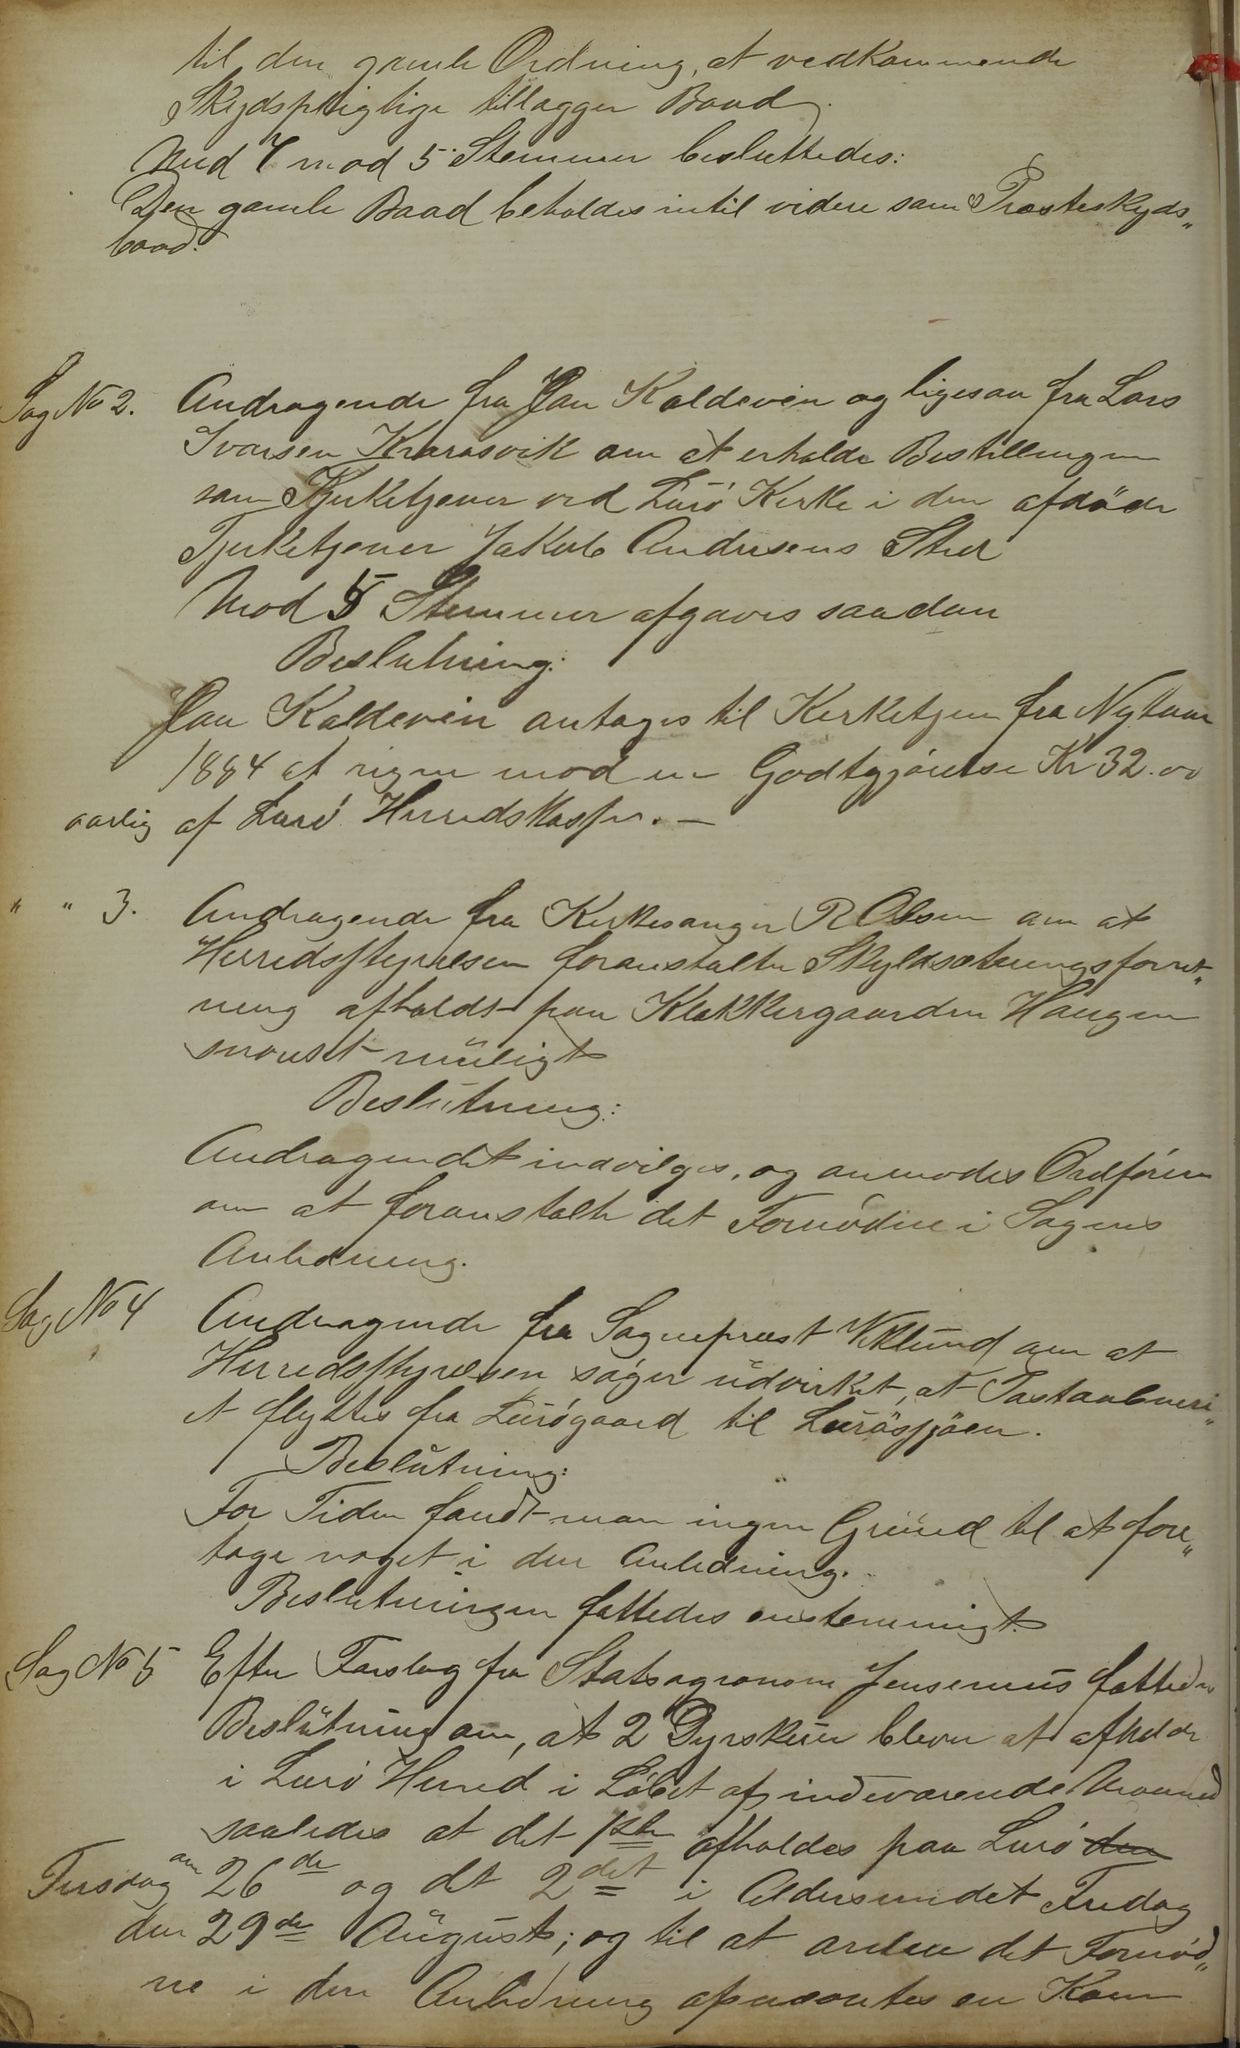 til den gamle Ordning, at vedkommende
Skydspligtige tillægger Baad.
Med 7 mod 5 Stemmer besluttedes:
Den gamle Baad beholdes intil videre som Præsteskyds„
baad.
Sag No 2. Andragende fra Paul Kaldevin og ligesaa fra Lars
Ivarsen Kvarøsvik om at erholde Bestillingen
som Kjerketjener ved Lurö Kirke i den afdöde
Kjerketjener Jakob Andersens Sted
Mod 5 Stemmer afgaves saadan
Beslutning:
Kaldevin antages til Kirketjen fra Nytaar
1884 at regne mod en Godtgjörelse Kr 32.00
aarlig af Lurö Herredskasse. —
" " 3. Andragende fra Kirkesanger R Olsen om at
Herredsstyrelsen foranstalter Skyldsætningsforret„
ning afholdt paa Klokkergaarden Haugen
snarest muligt
Beslutning:
Andragendet indvilges, og anmodes Ordfören
om at foranstalte det Fornödne i Sagens
Anledning.
Sag No 4 Andragende fra Sognepræst Viklund om at
Herredsstyrelsen söger udvirket, at Postaabneri„
et flyttes fra Lurögaard til Lurösjöen.
Beslutning:
For Tiden fandt man ingen Grund til at fore„
tage noget i den Anledning.
Beslutningen fattedes enstemmigt.
Sag No 5 Efter Forslag fra Statsagronom Jensenius fattedes
Beslutning om, at 2 Dyrskuer blever at afholde
i Lurö Herred i Löbet af indeværende Maaned
saaledes at det 1ste afholdes paa Lurö den
Tirsdag den 26de og det 2det i Aldersundet Fredag
den 29de August; og til at ordne det Fornöd„
ne i den Anledning opnævntes en Kom